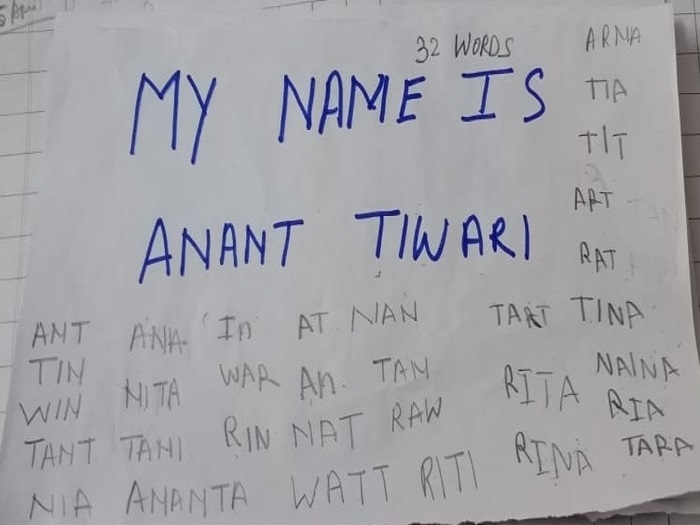 32 WORDS
MY NAME IS
ANANT TIWARI
ARNA
TIA
TIT
ART
RAT
ANT ANA In AT NAN TART TINA
TIN NITA WAR An. TAN RITA NAINA
WIN TANI RIN NAT RAW RINA RIA
TANT ANANTA WATT RITI TARA
NIA